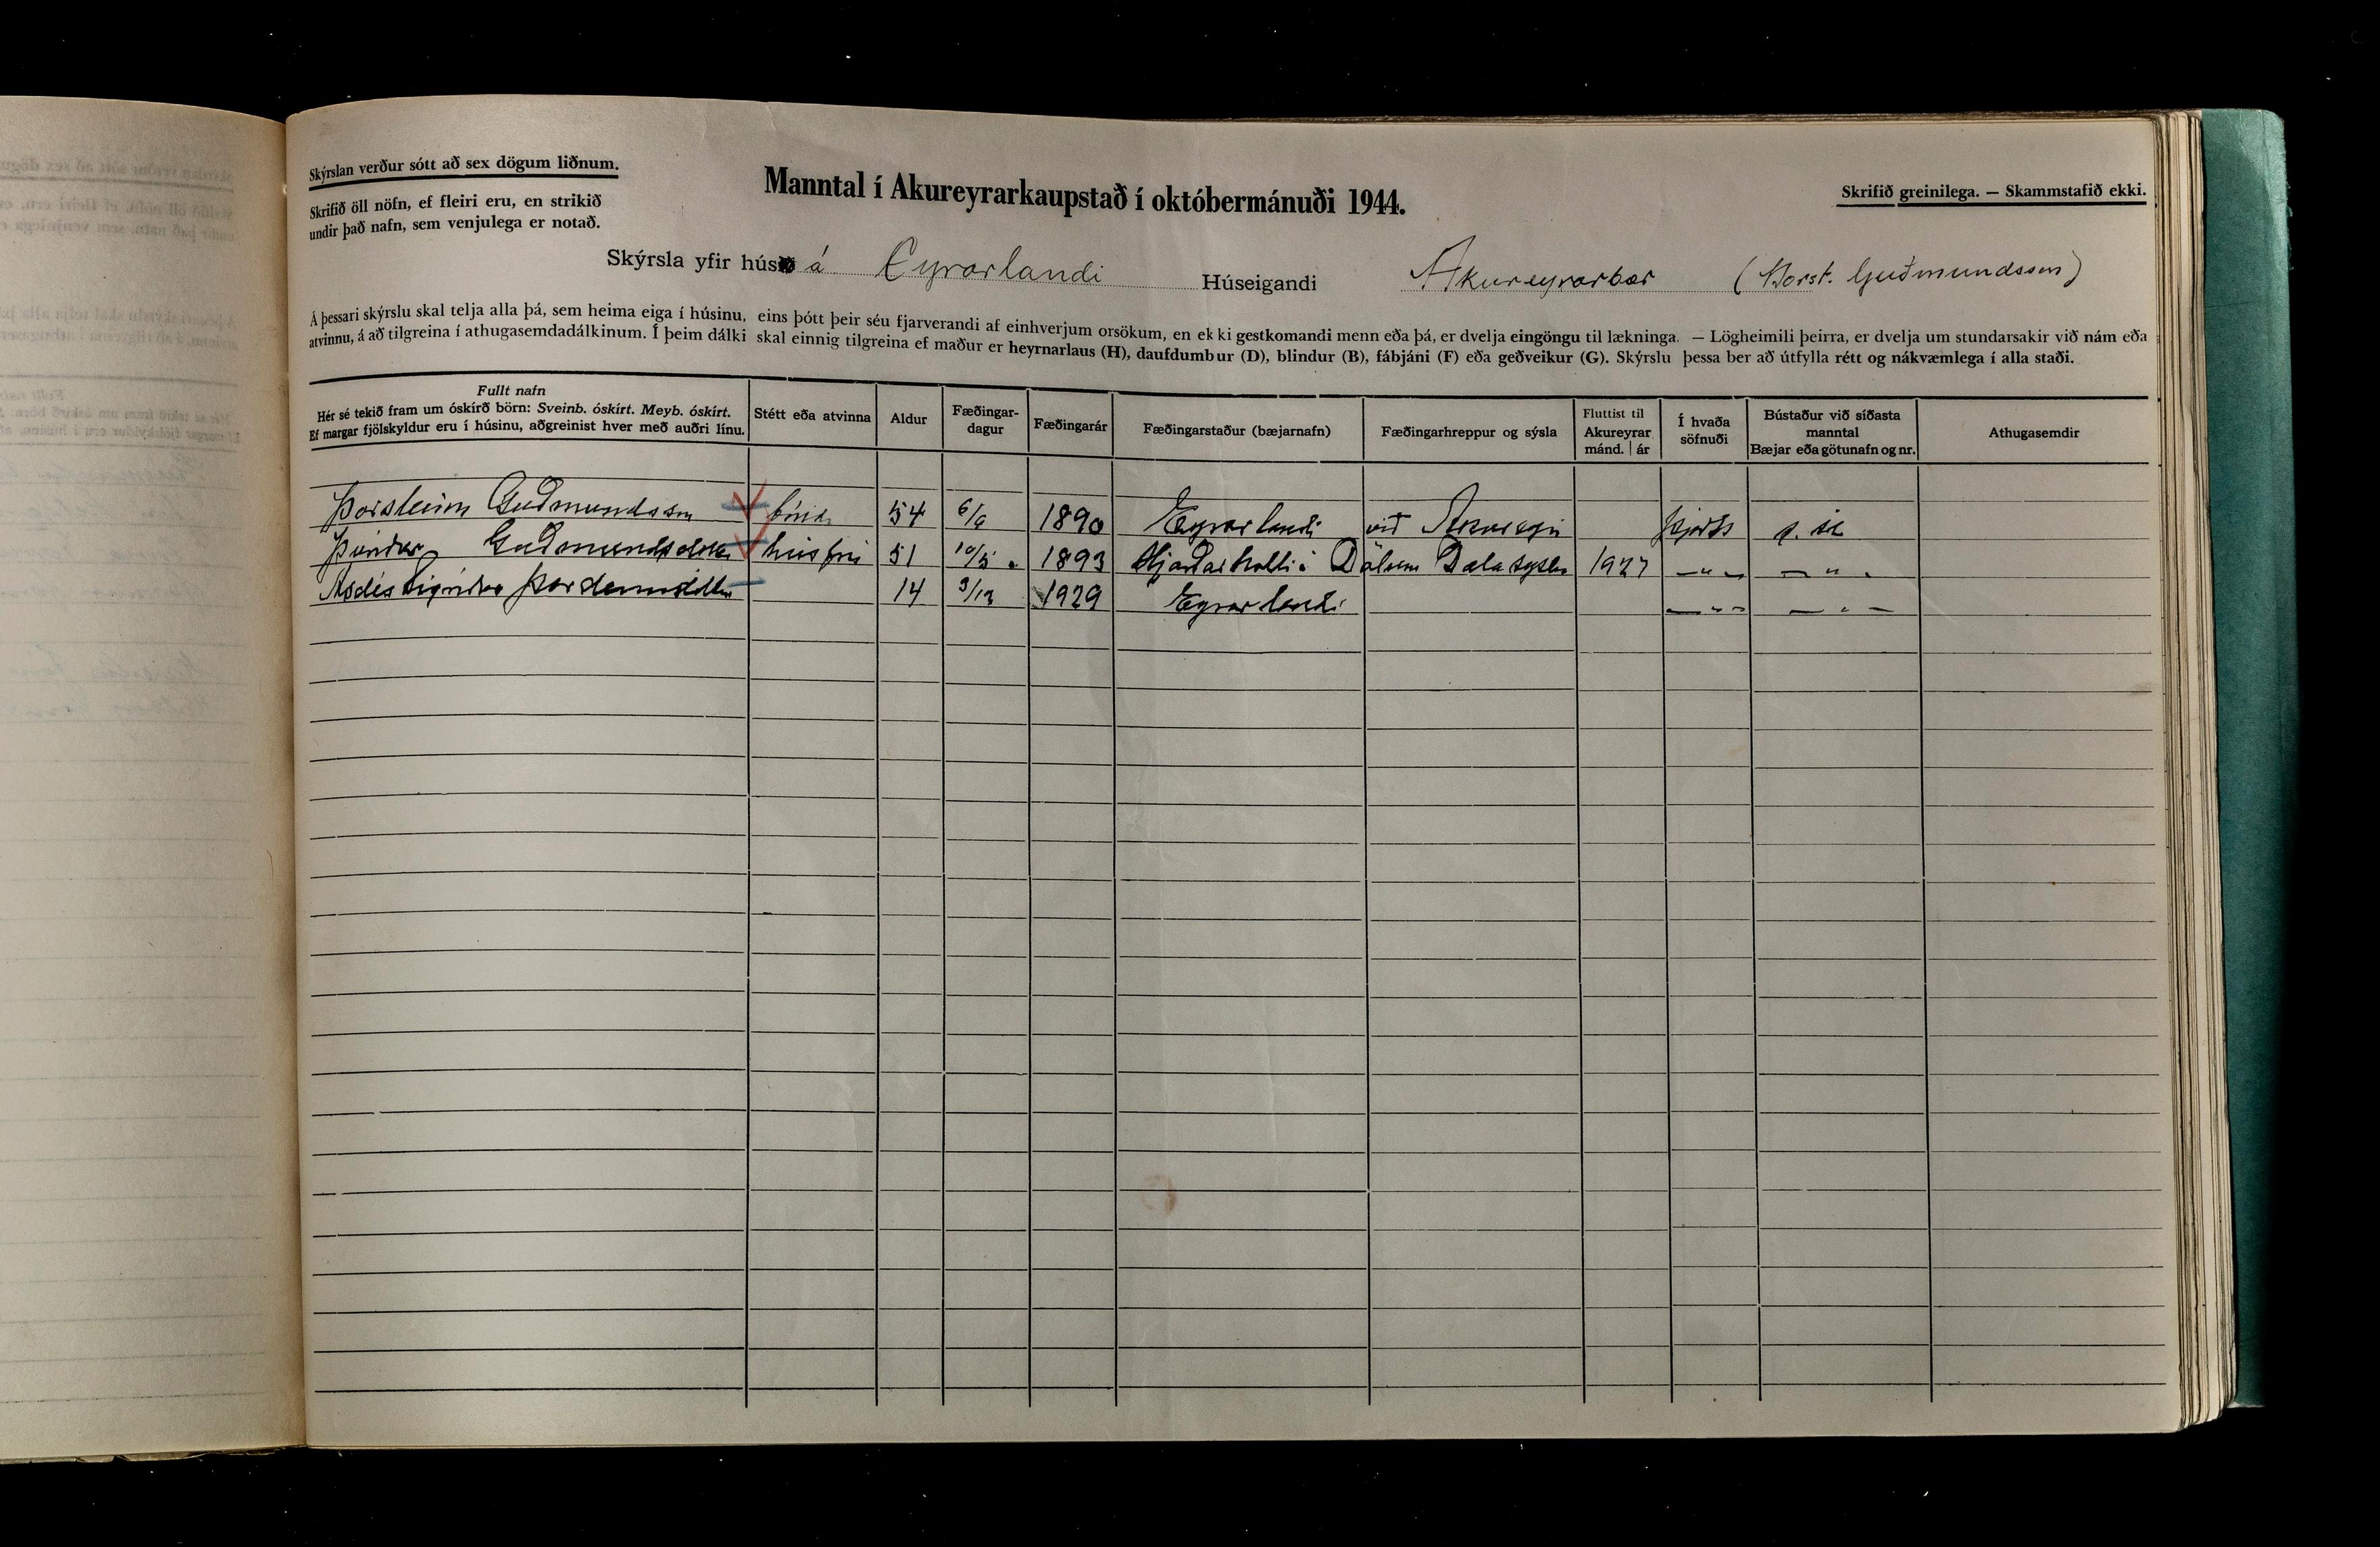 Skýrslan verður sótt að sex dögum liðnum.
Skrifið öll nöfn, ef fleiri eru, en strikið
undir það nafn, sem venjulega er notað.
Manntal í Akureyrarkaupstað í októbermánuði 1944.
Skrifið greinilega. — Skammstafið ekki.
Skýrsla yfir hús á Eyrarlandi Húseigandi Akureyrarbær (Þorst. Guðmundsson)
Á þessari skýrslu skal telja alla þá, sem heima eiga í húsinu, eins þótt þeir séu fjarverandi af einhverjum orsökum, en ekki gestkomandi menn eða þá, er dvelja eingöngu til lækninga. — Lögheimili þeirra, er dvelja um stundarsakir við nám eða
atvinnu, á að tilgreina í athugasemdadálkinum. Í þeim dálki skal einnig tilgreina ef maður er heyrnarlaus (H), daufdumbur (D), blindur (B), fábjáni (F) eða geðveikur (G). Skýrslu þessa ber að útfylla rétt og nákvæmlega í alla staði.
Fullt nafn
Hér sé tekið fram um óskírð börn: Sveinb. óskírt. Meyb. óskírt.
Ef margar fjölskyldur eru í húsinu, aðgreinist hver með auðri línu.
Stétt eða atvinna
Aldur
Fæðingar-
dagur
Fæðingarár
Fæðingarstaður (bæjarnafn)
Fæðingarhreppur og sýsla
Fluttist til
Akureyrar
mánd. | ár
Í hvaða
söfnuði
Bústaður við síðasta
manntal
Bæjar eða götunafn og nr.
Athugasemdir
Þorsteinn Guðmundsson 54 6/6 1890 Eyrarlandi við Akureyri
Guðmundsdóttir húsfrú 51 10/5 1893 Hjarðarholti í Dölum Dalasýslu 1927 — " — — " —
Ásdís Sigríður 14 3/12 1929 Eyrarlandi — " — — " —